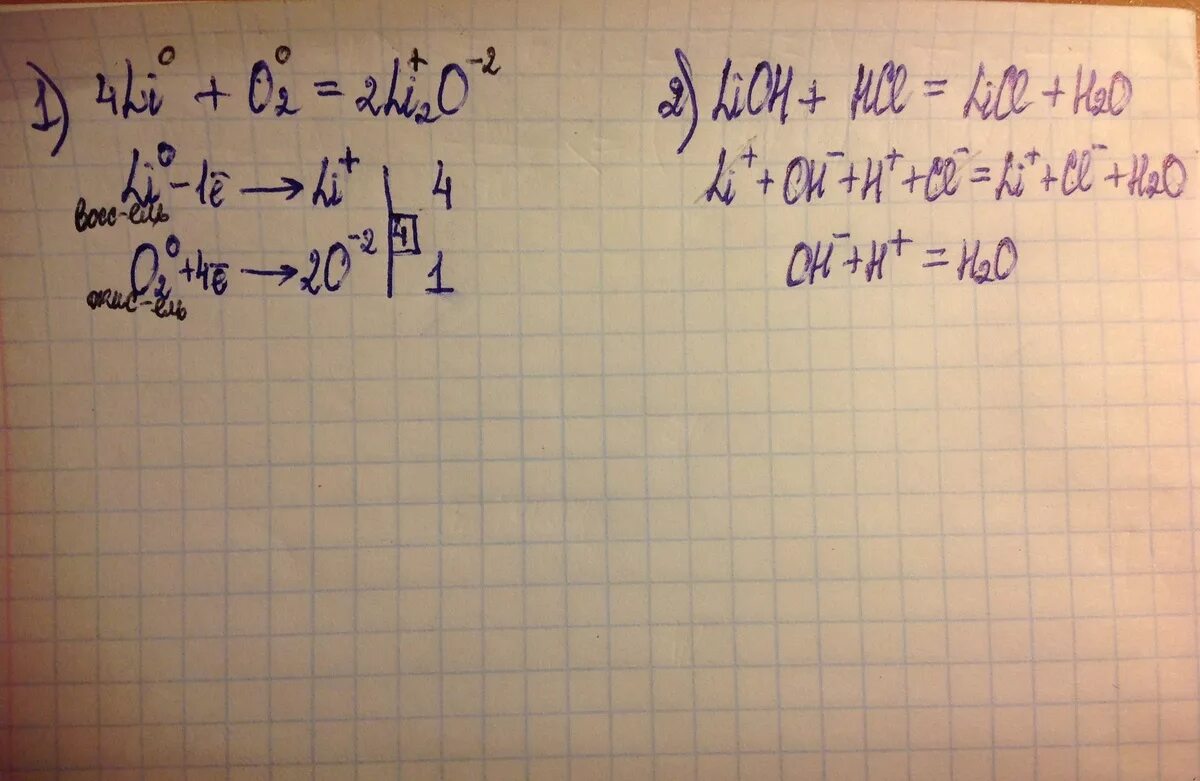 1) 4Li⁰ + O₂⁰ = 2Li₂⁺O⁻²
Li⁰ - 1ē → Li⁺ | 4
восс-ель
4
O₂⁰ + 4ē → 2O⁻² | 1
окис-ель
2) LiOH + HCl = LiCl + H₂O
Li⁺ + OH⁻ + H⁺ + Cl⁻ = Li⁺ + Cl⁻ + H₂O
OH⁻ + H⁺ = H₂O